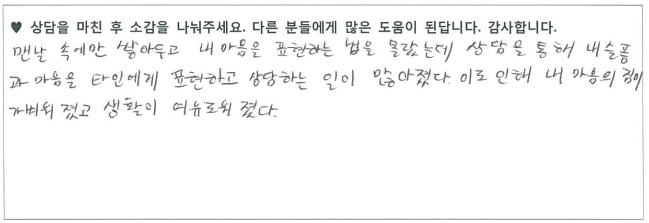 ♥ 상담을 마친 후 소감을 나눠주세요. 다른 분들에게 많은 도움이 된답니다. 감사합니다.
맨날 속에만 쌓아두고 내 마음을 표현하는 법을 몰랐는데 상담을 통해 내 슬픔
과 마음을 타인에게 표현하고 상담하는 일이 많아졌다. 이로 인해 내 마음의 짐이
가벼워 졌고 생활이 여유로워 졌다.